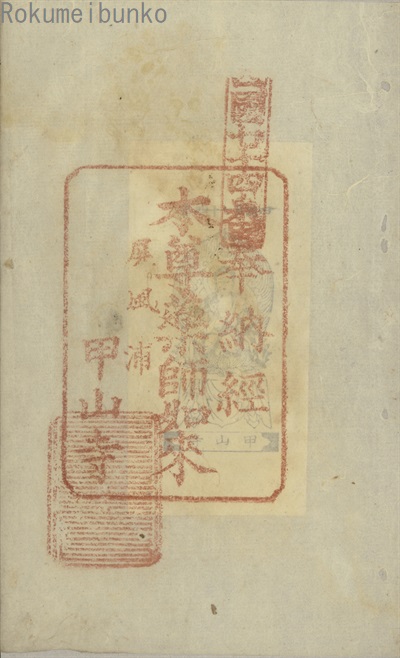 Rokumeibunko
四國七十四番
奉納經
本尊藥師如來
屏風浦
甲山寺
甲山寺